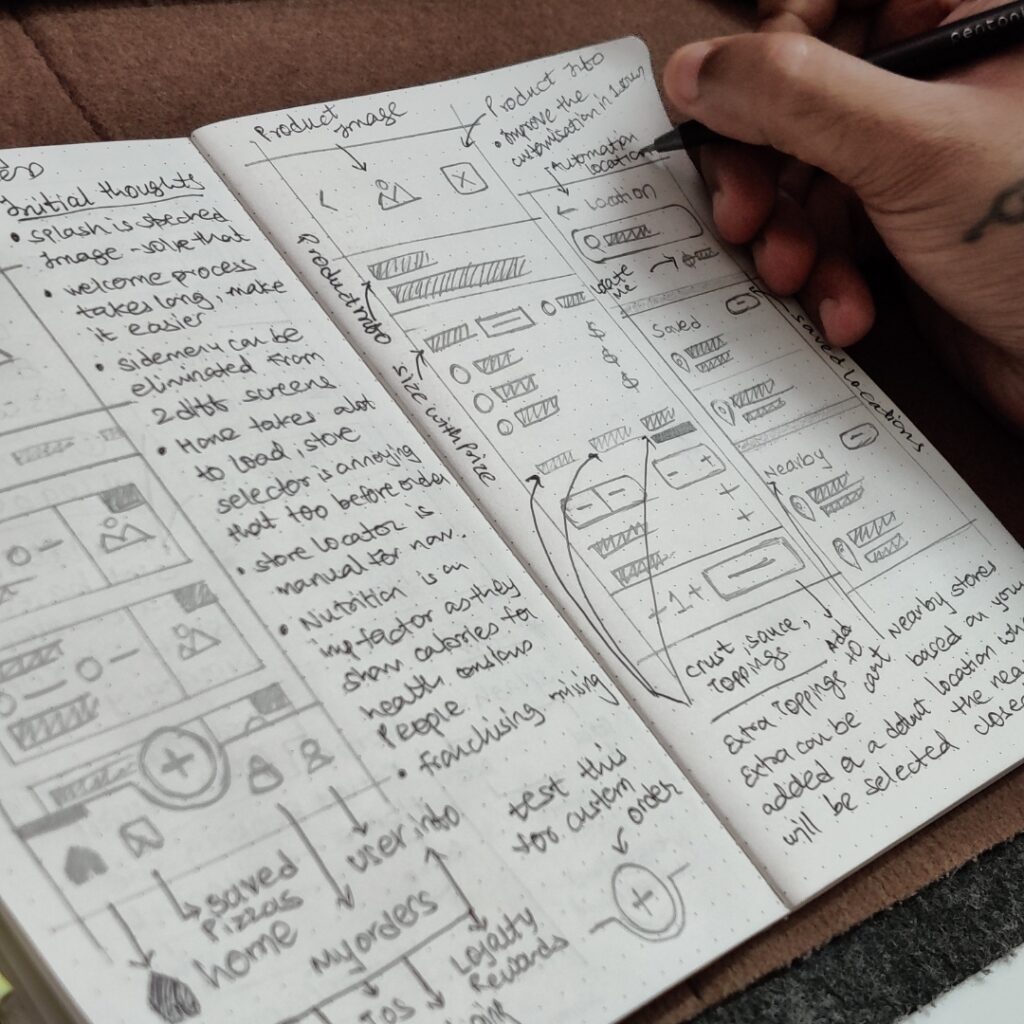 Initial thoughts
• splash is streched
Image - solve that
• welcome process
takes long, make
it easier
• sidemenu can be
eliminated from
2 diff screens
• Home takes alot
to load, store
selector is annoying
that too before order
• store locator is
manual for nav.
• Nutrition is an
imp factor as they
show calories for
health
People
• franchising missing
test this
for custom
order
user info
saved
Pizzas
home
My orders
Loyalty
Rewards
TOS
Product Image
Product Info
• Improve the
customisation in
Automation
location
Product Info
size with price
← Location
locate
me
Saved
saved locations
Nearby
$
$
$
- +
+
+
-1+
Crust, sauce,
Toppings
Add
to
cart
Extra Toppings
Extra can be
added
Nearby stores
based on your
location
a defult
will be selected